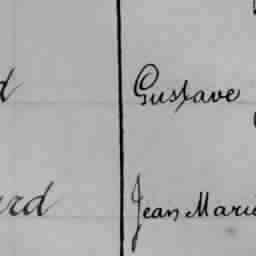 d Gustave
ard Jean Marie